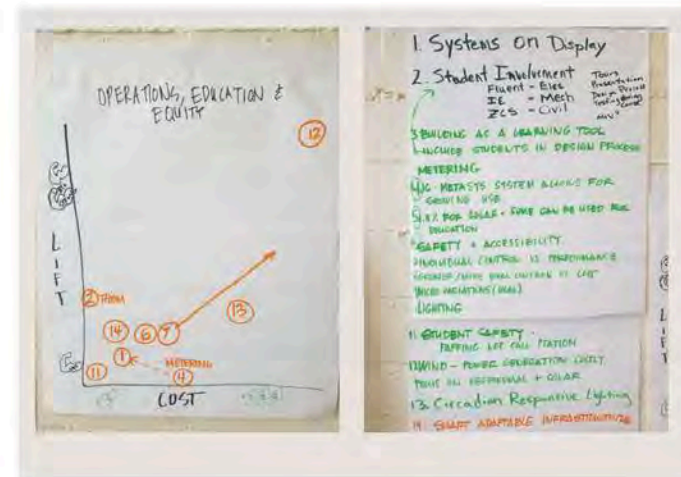 OPERATIONS, EDUCATION &
EQUITY
12
LIFT
2 TEAM
13
14 6 7
1
METERING
11
4
COST
1. Systems on Display
2. Student Involvement
Tours
Presentation
Fluent - Elec
IE - Mech
ZCS - Civil
3 BUILDING AS A LEARNING TOOL
INCLUDE STUDENTS IN DESIGN PROCESS
METERING
SYSTEM ALLOWS FOR
GROWING USE
FOR SOLAR - SOME CAN BE USED FOR
EDUCATION
SAFETY + ACCESSIBILITY
INDIVIDUAL CONTROL IS PERFORMANCE
CONTROL IS COST
LIGHTING
11 STUDENT SAFETY -
PARKING LOT CALL STATION
12 WIND - POWER GENERATION COSTLY
FOCUS ON GEOTHERMAL + SOLAR
13. Circadian Responsive Lighting
14 SMART ADAPTABLE INFRASTRUCTURE